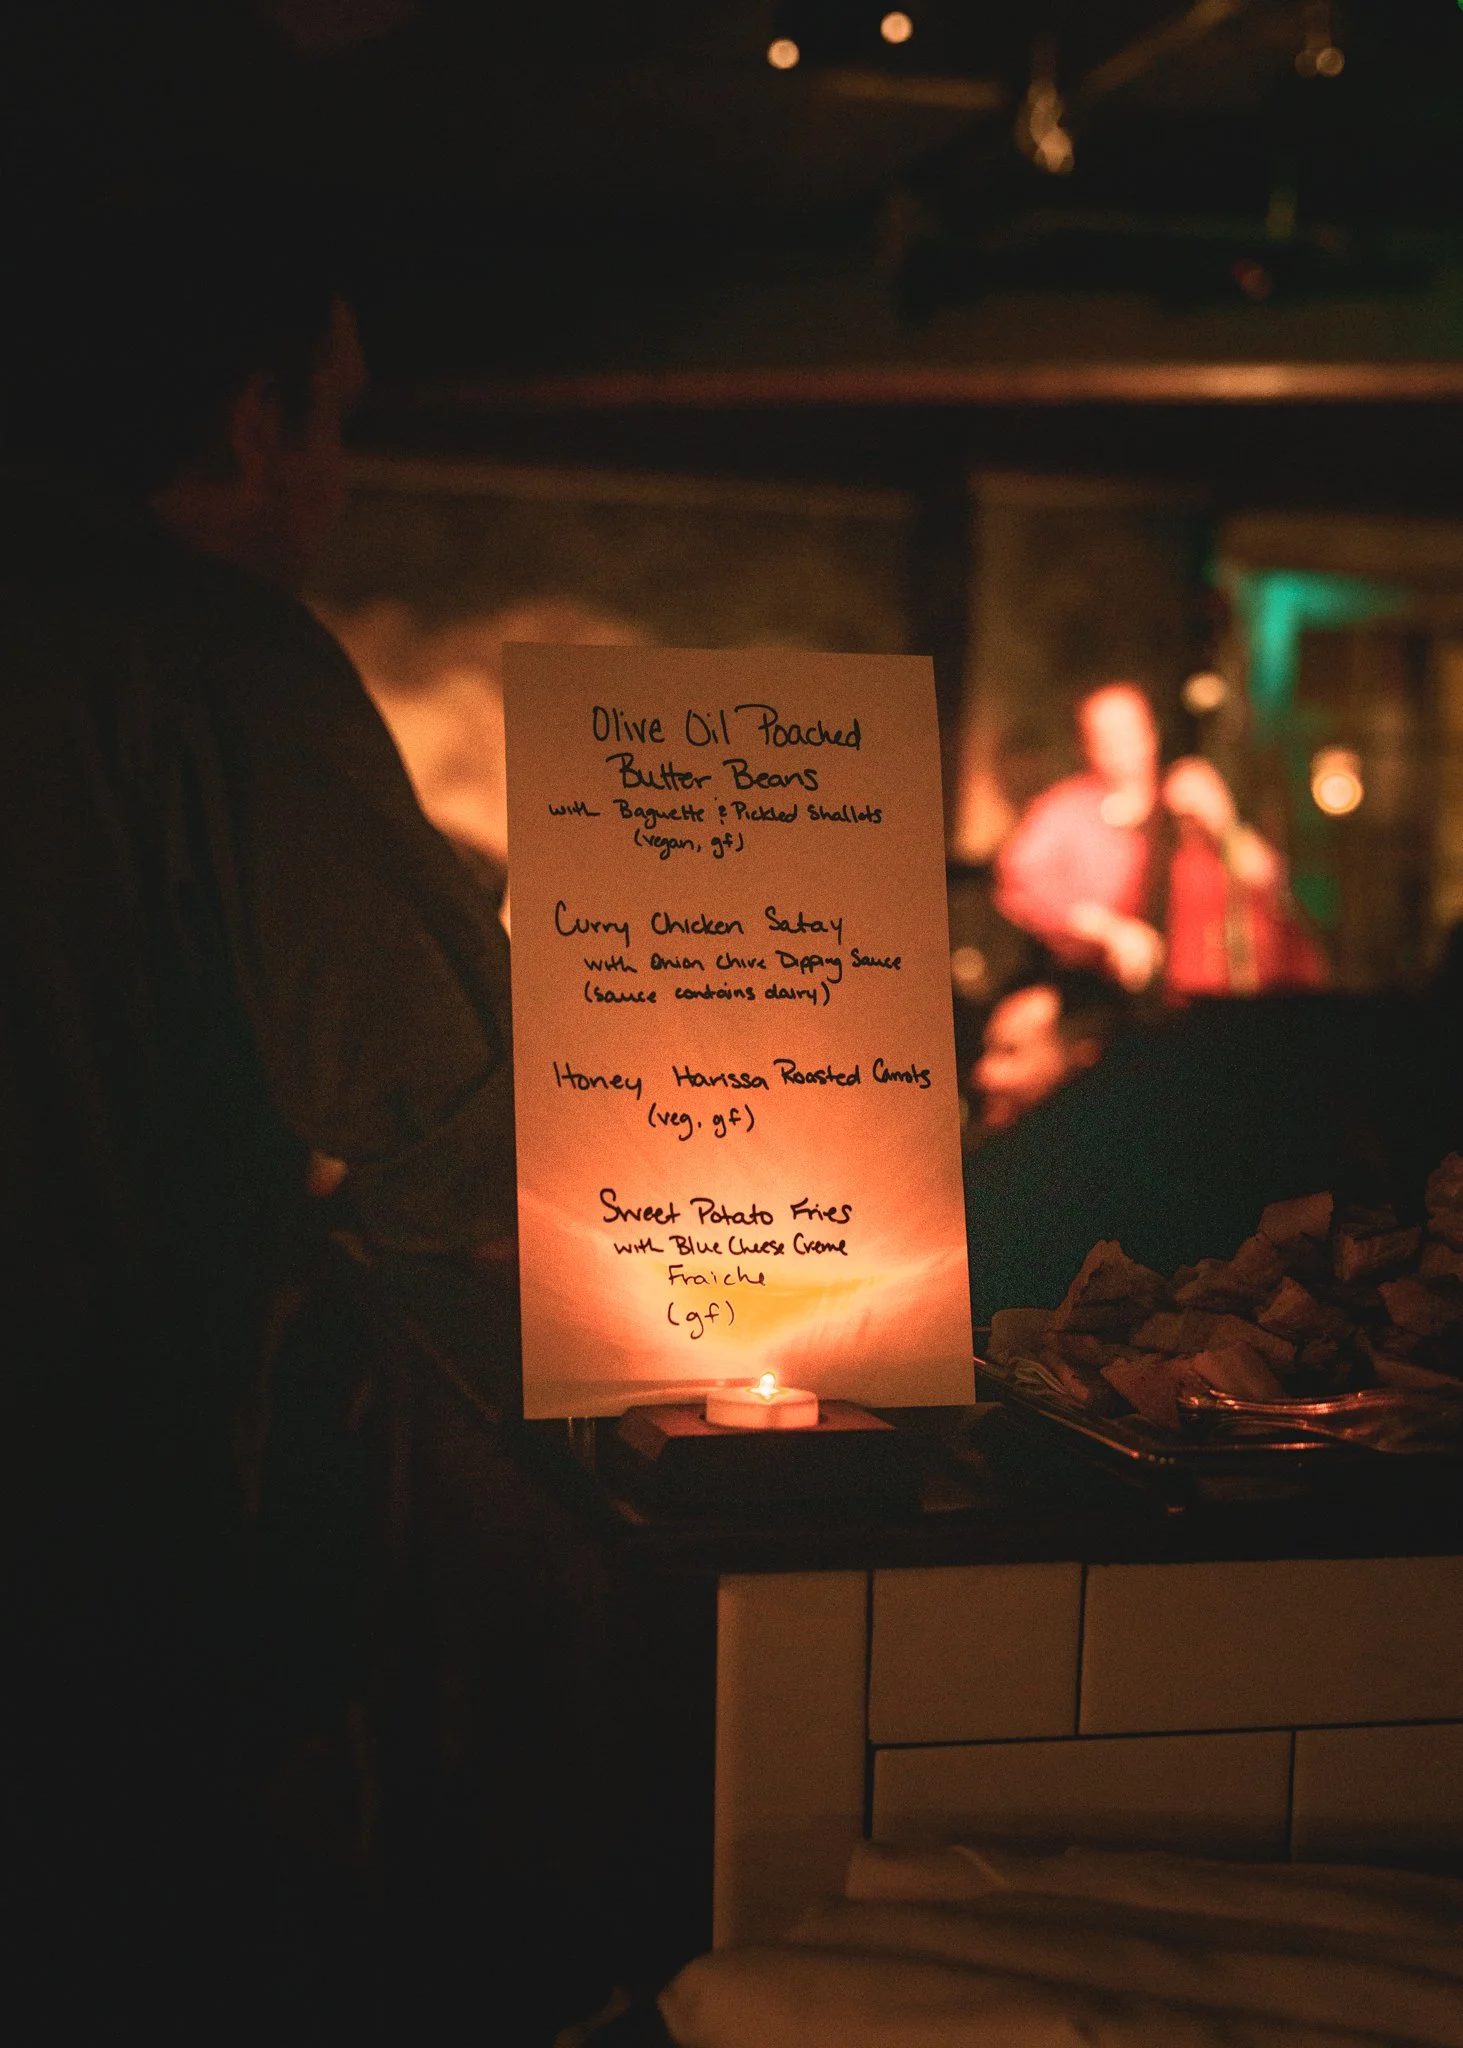 Olive Oil Poached
Butter Beans
with Baguette & Pickled Shallots
(vegan, gf)
Curry Chicken Satay
with Onion Chive Dipping Sauce
(sauce contains dairy)
Honey Harissa Roasted Carrots
(veg, gf)
Sweet Potato Fries
with Blue Cheese Creme
Fraiche
(gf)